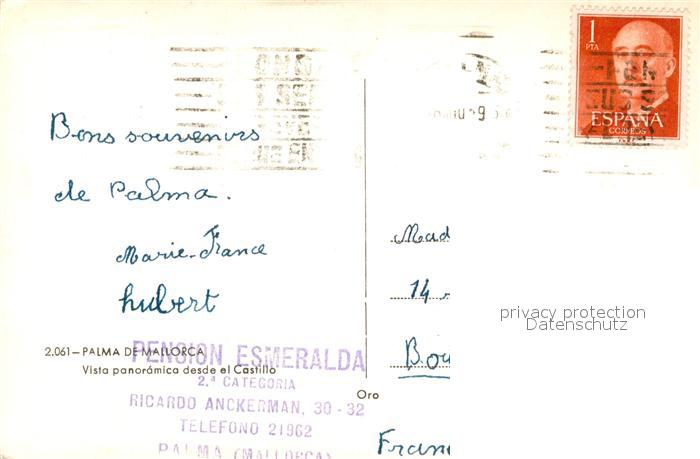 1
PTA
ESPAÑA
CORREOS
Bons souvenirs
de Palma.
Marie-France
hubert
2.061 - PALMA DE MALLORCA
Vista panorámica desde el Castillo
PENSION ESMERALDA
2.ª CATEGORIA
RICARDO ANCKERMAN, 30 - 32
TELEFONO 21962
PALMA (MALLORCA)
Oro
Mad
14
Bou
Fran
privacy protection
Datenschutz